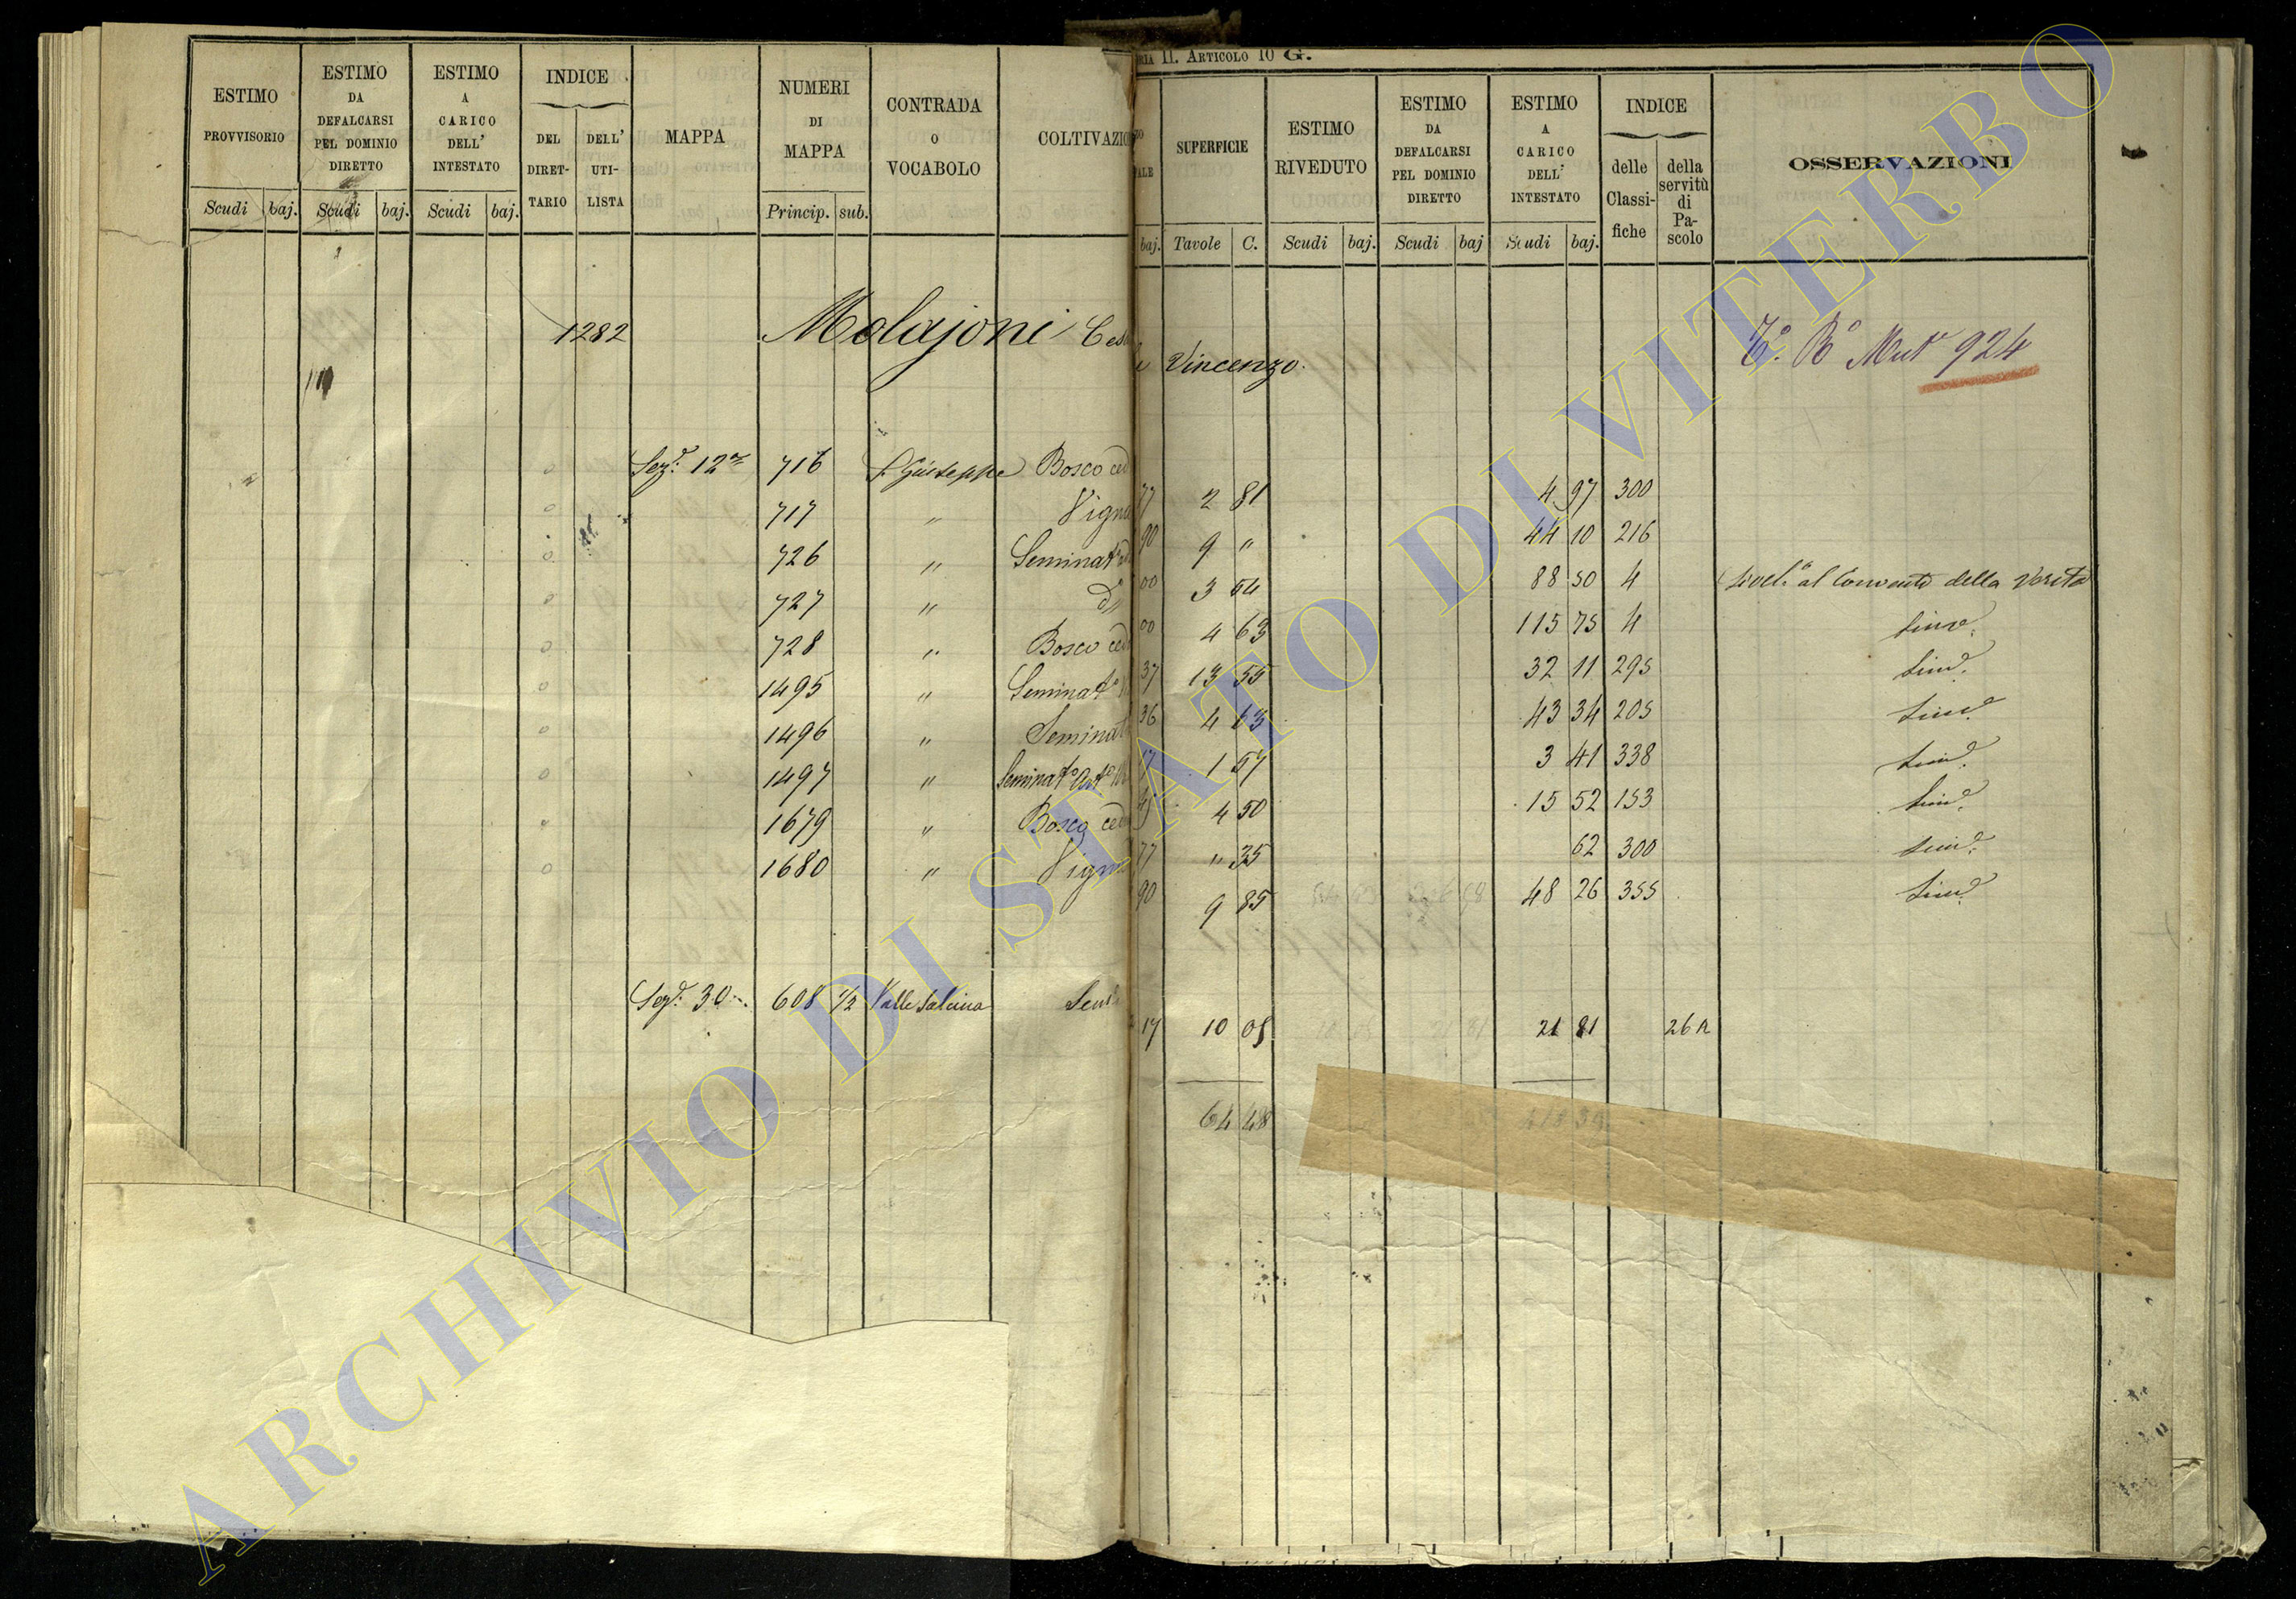 ESTIMO PROVVISORIO
Scudi baj.
ESTIMO DA DEFALCARSI PEL DOMINIO DIRETTO
Scudi baj.
ESTIMO A CARICO DELL' INTESTATO
Scudi baj.
INDICE
DEL DIRET- TARIO
DELL' UTI- LISTA
MAPPA
NUMERI DI MAPPA
Princip. sub.
CONTRADA O VOCABOLO
1282 Molajoni
Sez.e 12a 716 S. Giuseppe Bosco ced
717 " Vigna
726 " Seminato
727 " do
728 " Bosco ced
1495 " Seminato
1496 " Seminat
1497 " Seminato
1679 " Bosco ced
1680 " Vign
Sez.e 30 608 1/2 Valle Salcina Sem
II. ARTICOLO 10 G.
baj.
SUPERFICIE
Tavole C.
ESTIMO RIVEDUTO
Scudi baj.
ESTIMO DA DEFALCARSI PEL DOMINIO DIRETTO
Scudi baj
ESTIMO A CARICO DELL' INTESTATO
Scudi baj.
INDICE
delle Classi- fiche
della servitù di Pa- scolo
OSSERVAZIONI
Vincenzo Mut 924
77 2 81 4 97 300
90 9 " 44 10 216
00 3 54 88 50 4 Livel.o al Convento della Verità
00 4 63 115 75 4 Simo
37 13 55 32 11 295 Simo
36 4 63 43 34 205 Simo
17 1 57 3 41 338 Simo
4 50 15 52 153 Simo
77 " 35 62 300 Simo
90 9 85 48 26 355 Simo
17 10 05 21 81 26
64 48 418 39
ARCHIVIO DI STATO DI VITERBO